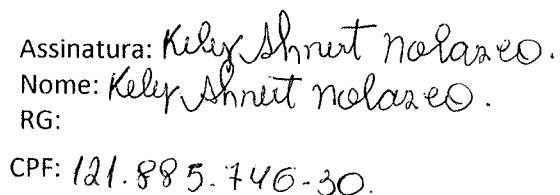 Assinatura: Kely Ahnert Nolazco.
Nome: Kely Ahnert Nolazco.
RG:
CPF: 121.885.746-30.